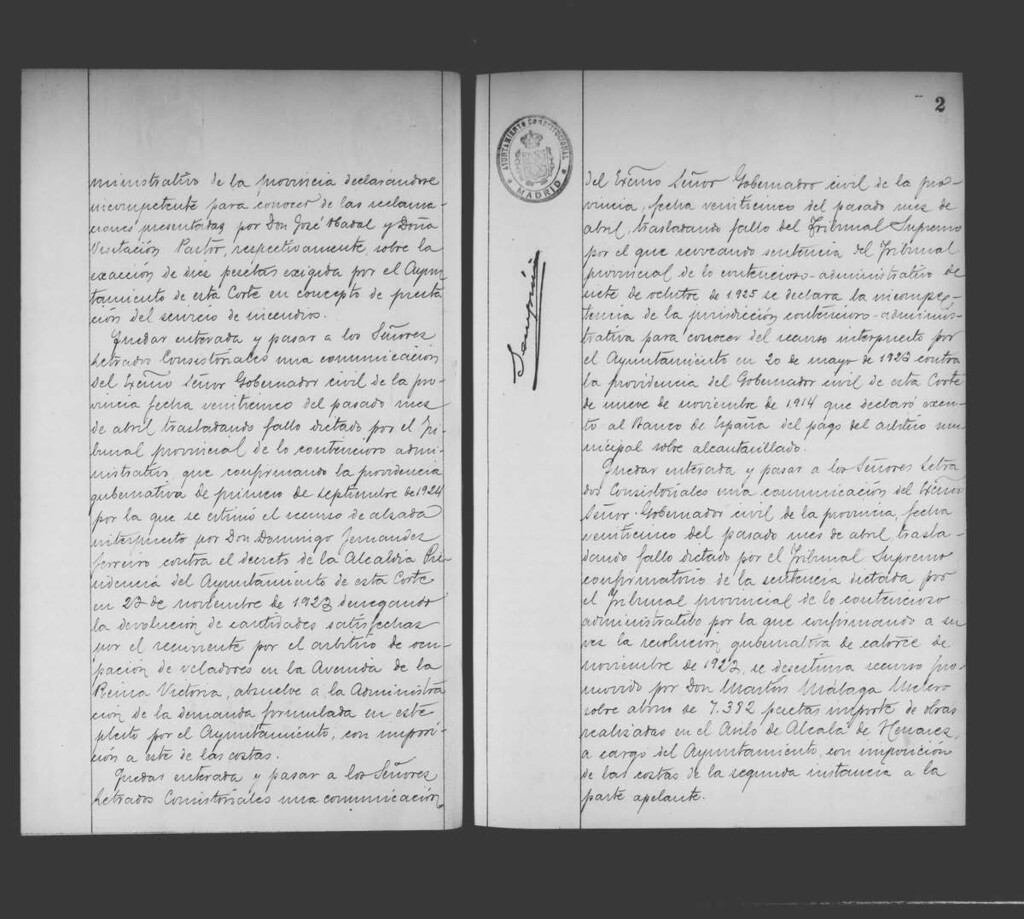 ministrativo de la provincia declarándose
incompetente para conocer de las reclama-
ciones presentadas por Don José Abadal y Doña
Visitación Pastor, respectivamente, sobre la
exacción de diez pesetas exigida por el Ayun
tamiento de esta Corte en concepto de presta
ción del servicio de incendios.
Quedar enterada y pasar a los Señores
Letrados Consistoriales una comunicación
del Excmo Señor Gobernador civil de la pro-
vincia fecha veinticinco del pasado mes
de abril trasladando fallo dictado por el Tri-
bunal provincial de lo contencioso admi-
nistrativo, que confirmando la providencia
gubernativa de primero de septiembre de 1924
por la que se estimó el recurso de alzada
interpuesto por Don Domingo Fernandez
Ferreiro contra el decreto de la Alcaldía Pre-
sidencia del Ayuntamiento de esta Corte
en 23 de noviembre de 1923 denegando
la devolución de cantidades satisfechas
por el recurrente por el arbitrio de ocu-
pación de veladores en la Avenida de la
Reina Victoria, absuelve a la Administra
ción de la demanda formulada en este
pleito por el Ayuntamiento, con imposi-
ción a este de las costas.
Quedar enterada y pasar a los Señores
Letrados Consistoriales una comunicación
2
AYUNTAMIENTO CONSTITUCIONAL
MADRID
del Excmo Señor Gobernador civil de la pro-
vincia, fecha veinticinco del pasado mes de
abril, trasladando fallo del Tribunal Supremo
por el que revocando sentencia del Tribunal
provincial de lo contencioso-administrativo de
siete de octubre de 1925 se declara la incompe-
tencia de la jurisdicción contencioso-adminis-
trativa para conocer del recurso interpuesto por
el Ayuntamiento en 20 de mayo de 1923 contra
la providencia del Gobernador civil de esta Corte
de nueve de noviembre de 1914 que declaró exen-
to al Banco de España del pago del arbitrio mu-
nicipal sobre alcantarillado.
Quedar enterada y pasar a los Señores Letra
dos Consistoriales una comunicación del Excmo
Señor Gobernador civil de la provincia, fecha
veinticinco del pasado mes de abril, trasla-
dando fallo dictado por el Tribunal Supremo
confirmatorio de la sentencia dictada por
el Tribunal provincial de lo contencioso
administratibo por la que confirmando a su
vez la resolución gubernativa de catorce de
noviembre de 1923, se desestima recurso pro-
movido por Don Martín Málaga Melero
sobre abono de 7.382 pesetas importe de obras
realizadas en el Asilo de Alcalá de Henares,
a cargo del Ayuntamiento, con imposición
de las costas de la segunda instancia a la
parte apelante.